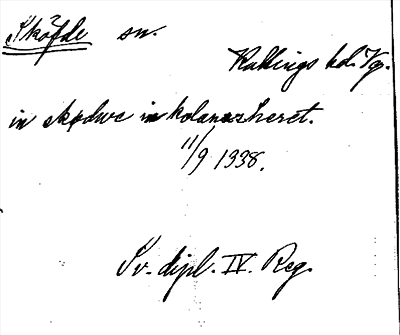 Skövde sn.
Kåkinds hd. Vg.
in skødwe in kolanszheret.
11/9 1338.
Sv. dipl. IV. Reg.